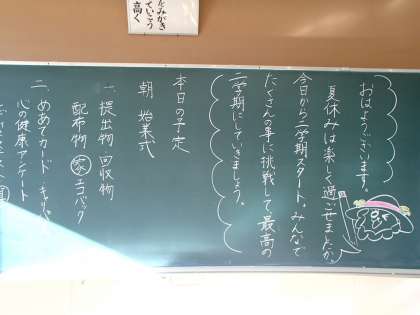 をみがき
ていこう
高く
おはようございます。
夏休みは楽しく過ごせましたか。
今日から二学期スタート。みんなで
たくさんの事に挑戦して、最高の
二学期にしていきましょう。
本日の予定
朝 始業式
一、提出物・回収物
配布物 家 エコバック
二、めあてカード
心の健康アンケート